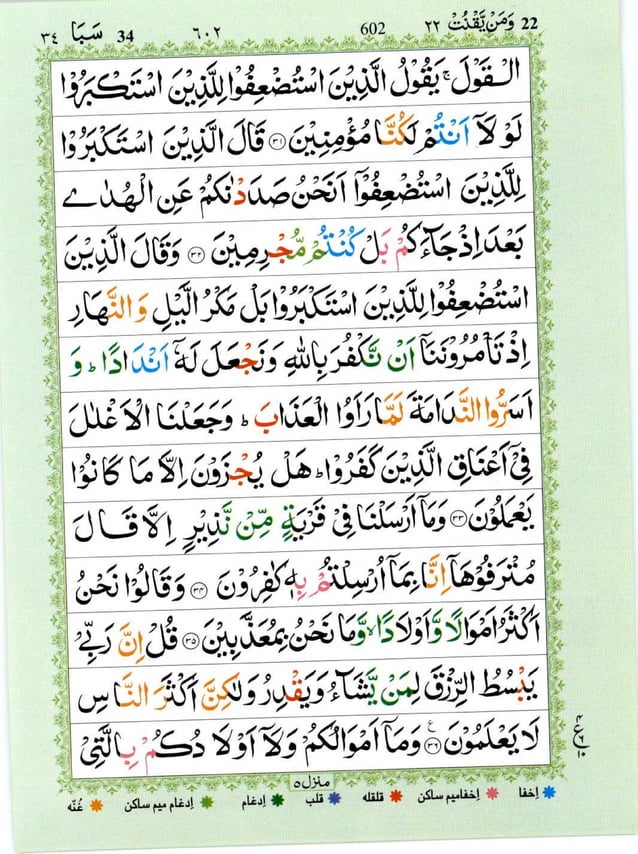 22 وَمَنْ يَّقْنُتْ ٢٢ 602 ٦٠٢ 34 سَبَا ٣٤
الْقَوْلَ ۚ يَقُوْلُ الَّذِيْنَ اسْتُضْعِفُوْا لِلَّذِيْنَ اسْتَكْبَرُوْا
لَوْ لَاۤ اَنْتُمْ لَكُنَّا مُؤْمِنِيْنَ ﴿۳۱﴾ قَالَ الَّذِيْنَ اسْتَكْبَرُوْا
لِلَّذِيْنَ اسْتُضْعِفُوْۤا اَنَحْنُ صَدَدْنٰكُمْ عَنِ الْهُدٰى
بَعْدَ اِذْ جَآءَكُمْ بَلْ كُنْتُمْ مُّجْرِمِيْنَ ﴿۳۲﴾ وَقَالَ الَّذِيْنَ
اسْتُضْعِفُوْا لِلَّذِيْنَ اسْتَكْبَرُوْا بَلْ مَكْرُ الَّيْلِ وَالنَّهَارِ
اِذْ تَاْمُرُوْنَنَاۤ اَنْ نَّكْفُرَ بِاللّٰهِ وَنَجْعَلَ لَهٗۤ اَنْدَادًا ؕ وَ
اَسَرُّوا النَّدَامَةَ لَمَّا رَاَوُا الْعَذَابَ ؕ وَجَعَلْنَا الْاَغْلٰلَ
فِيْۤ اَعْنَاقِ الَّذِيْنَ كَفَرُوْا ؕ هَلْ يُجْزَوْنَ اِلَّا مَا كَانُوْا
يَعْمَلُوْنَ ﴿۳۳﴾ وَمَاۤ اَرْسَلْنَا فِيْ قَرْيَةٍ مِّنْ نَّذِيْرٍ اِلَّا قَالَ
مُتْرَفُوْهَاۤ اِنَّا بِمَاۤ اُرْسِلْتُمْ بِهٖ كٰفِرُوْنَ ﴿۳۴﴾ وَقَالُوْا نَحْنُ
اَكْثَرُ اَمْوَالًا وَّاَوْلَادًا ۙ وَّمَا نَحْنُ بِمُعَذَّبِيْنَ ﴿۳۵﴾ قُلْ اِنَّ رَبِّيْ
يَبْسُطُ الرِّزْقَ لِمَنْ يَّشَآءُ وَيَقْدِرُ وَلٰكِنَّ اَكْثَرَ النَّاسِ
لَا يَعْلَمُوْنَ ﴿۳۶﴾ ع وَمَاۤ اَمْوَالُكُمْ وَلَاۤ اَوْلَادُكُمْ بِالَّتِيْ
منزل ۵
اِخفا اِخفامیم ساکن قلقله قلب اِدغام اِدغام میم ساکن غُنّه